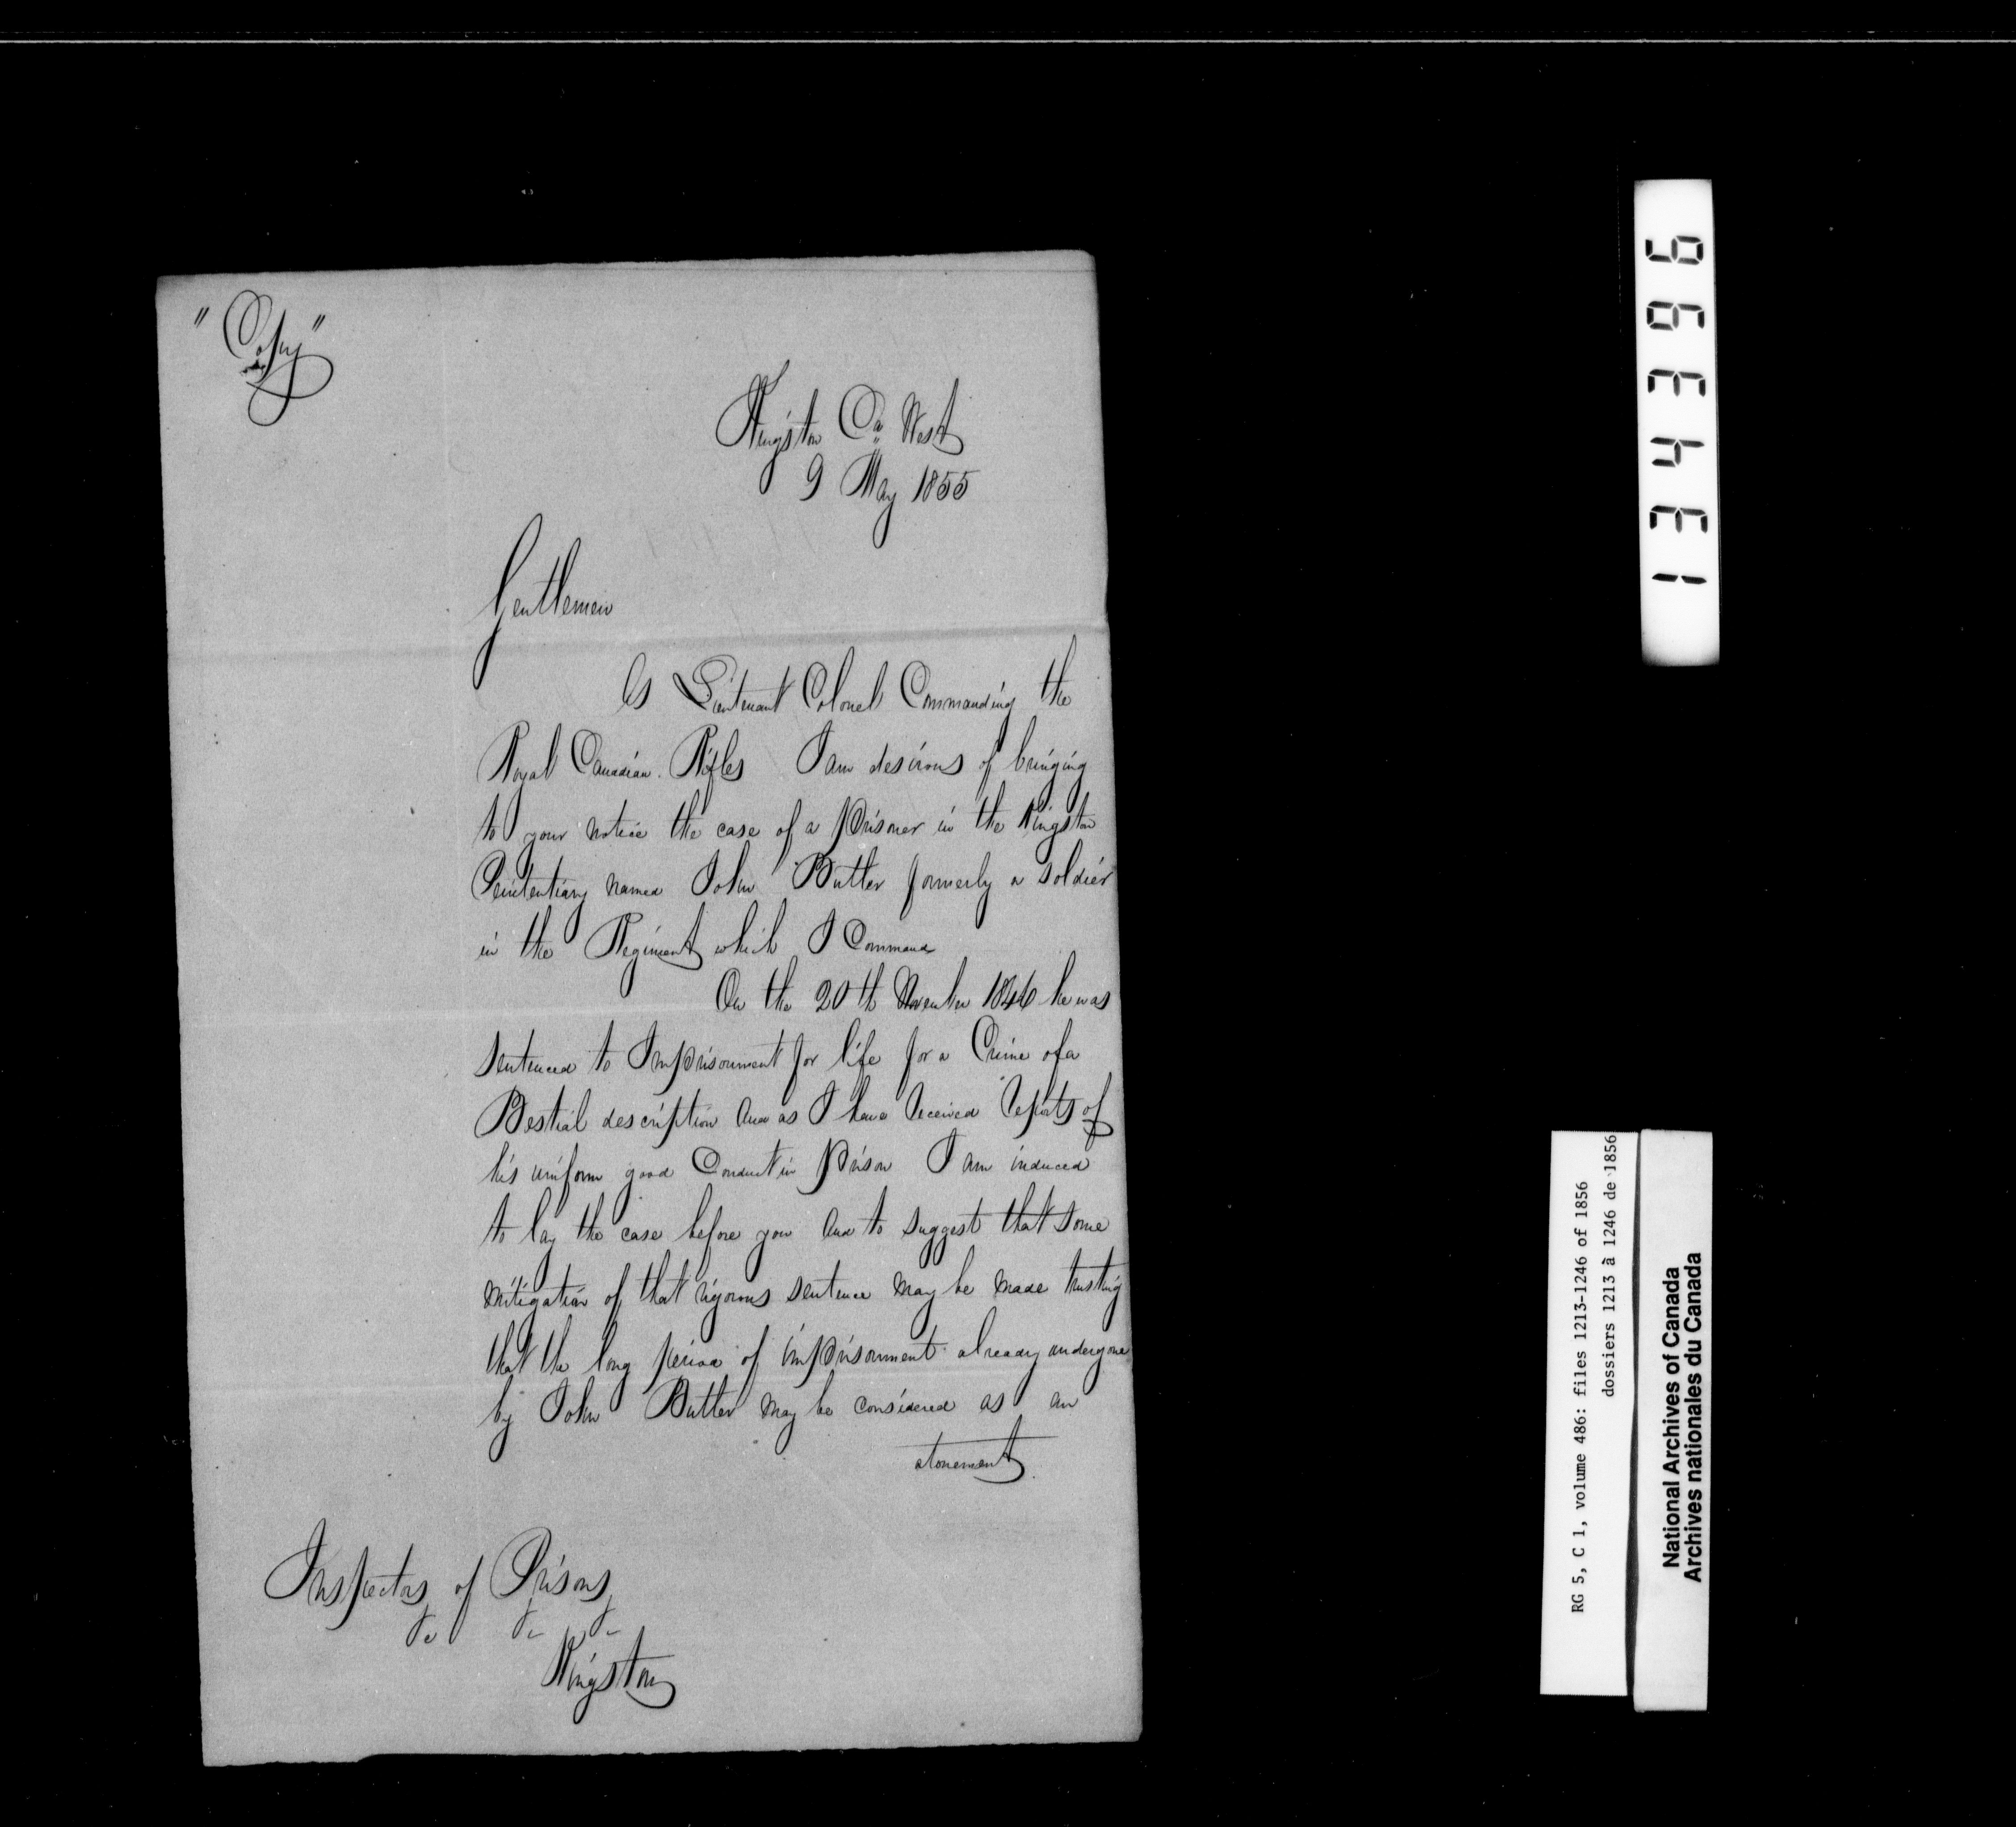 "Copy"
Kingston Ca West
9 May 1855
Gentlemen
As Lieutenant Colonel Commanding the
Royal Canadian Rifles I am desirous of bringing
to your notice the case of a prisoner in the Kingston
Penitentiary named John Butler formerly a soldier
in the Regiment which I Command
On the 20th November 1846 he was
sentenced to Imprisonment for life for a Crime of a
Bestial description and as I have received reports of
his uniform good Conduct in prison I am induced
to lay the case before you and to suggest that some
mitigation of that rigorous sentence may be made trusting
that the long period of imprisonment already undergone
by John Butler may be considered as an
atonement
Inspectors of Prisons
&c &c &c
Kingston
134396
RG 5, C 1, volume 486: files 1213-1246 of 1856
dossiers 1213 à 1246 de 1856
National Archives of Canada
Archives nationales du Canada